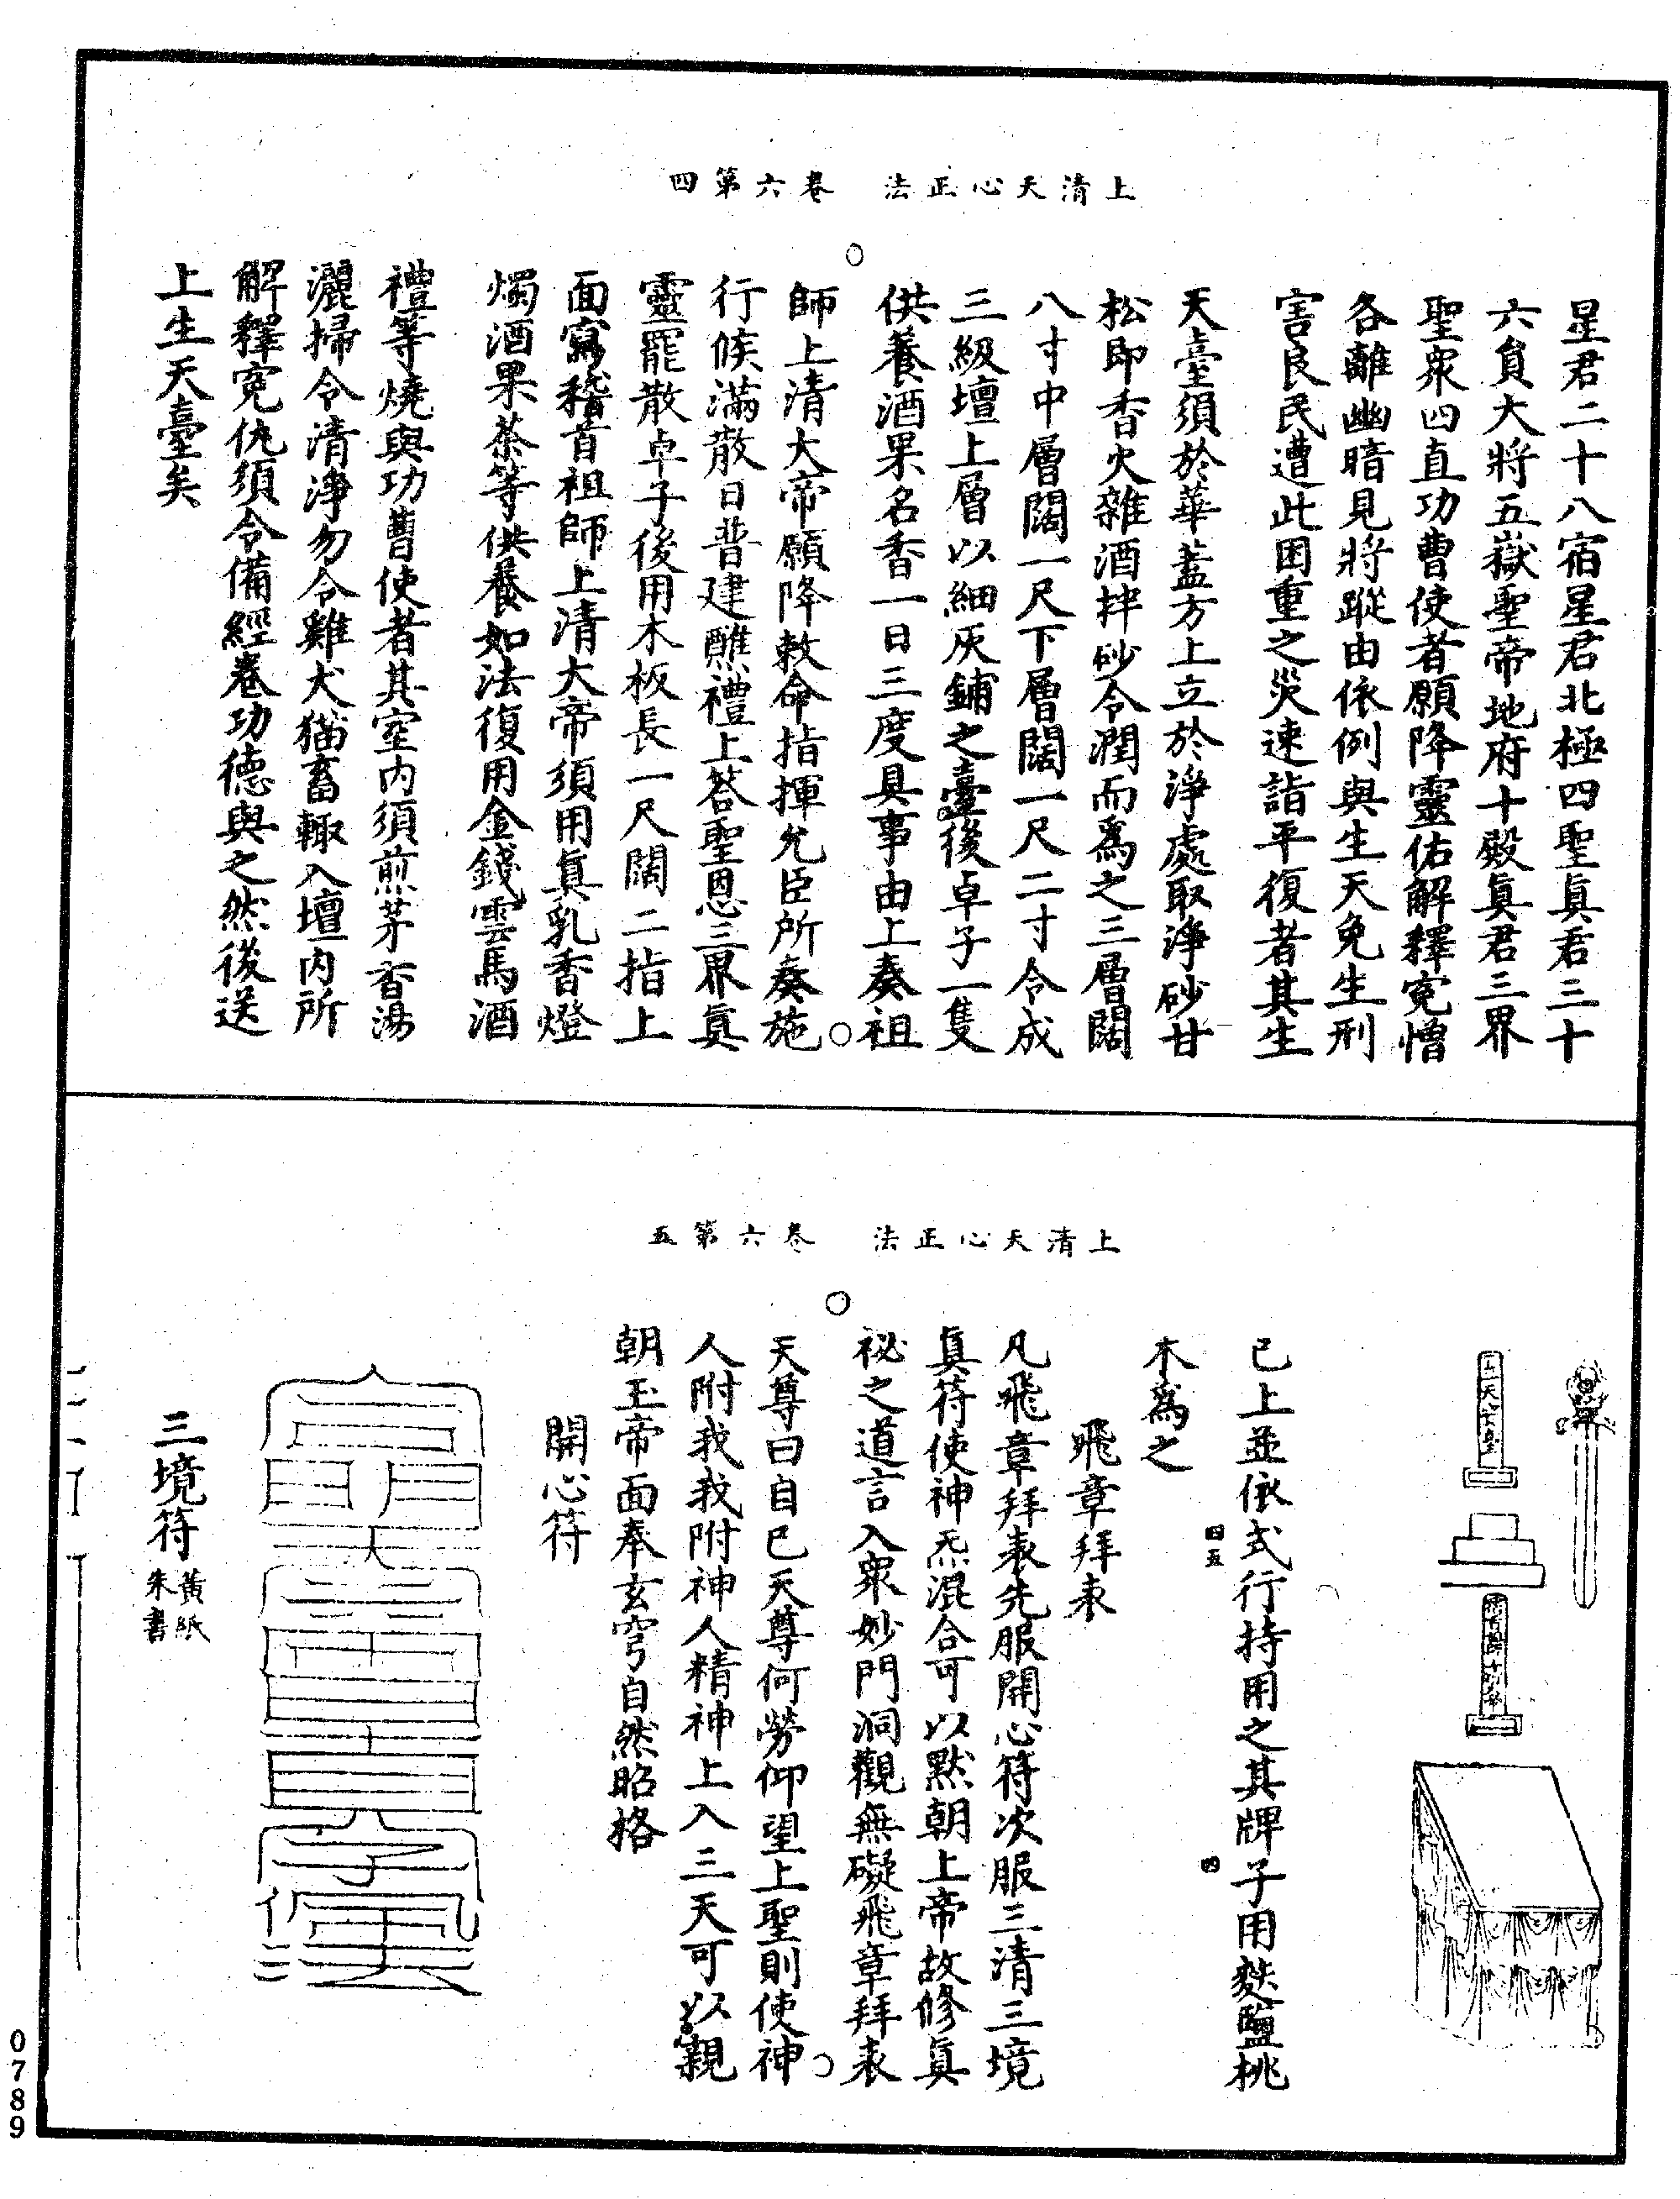 上清天心正法　卷六第四
星君二十八宿星君北極四聖眞君三十
六員大將五嶽聖帝地府十殿眞君三界
聖衆四直功曹使者願降靈佑解釋寃憎
各離幽暗見將蹤由依例與生天免生刑
害良民遭此困重之災速詣平復者其生
天臺須於華蓋方上立於淨處取淨砂甘
松卽香火雜酒拌砂令潤而爲之三層闊
八寸中層闊一尺下層闊一尺二寸令成
三級壇上層以細灰鋪之臺後卓子一隻
供養酒果名香一日三度具事由上奏祖
師上清大帝願降敕命指揮允臣所奏施
行候滿散日普建醮禮上答聖恩三界眞
靈罷散卓子後用木板長一尺闊二指上
面寫稽首祖師上清大帝須用眞乳香燈
燭酒果茶等供養如法復用金錢雲馬酒
禮等燒與功曹使者其室內須煎茅香湯
灑掃令清淨勿令雞犬猫畜輙入壇內所
解釋寃仇須令備經卷功德與之然後送
上生天臺矣
上清天心正法　卷六第五
已上並依式行持用之其牌子用麩鹽桃
木爲之
飛章拜表
凡飛章拜表先服開心符次服三清三境
眞符使神炁混合可以默朝上帝故修眞
祕之道言入衆妙門洞觀無礙飛章拜表
天尊曰自已天尊何勞仰望上聖則使神
人附我我附神人精神上入三天可以親
朝玉帝面奉玄穹自然昭格
開心符
三境符 黃紙朱書
四五
四
0789